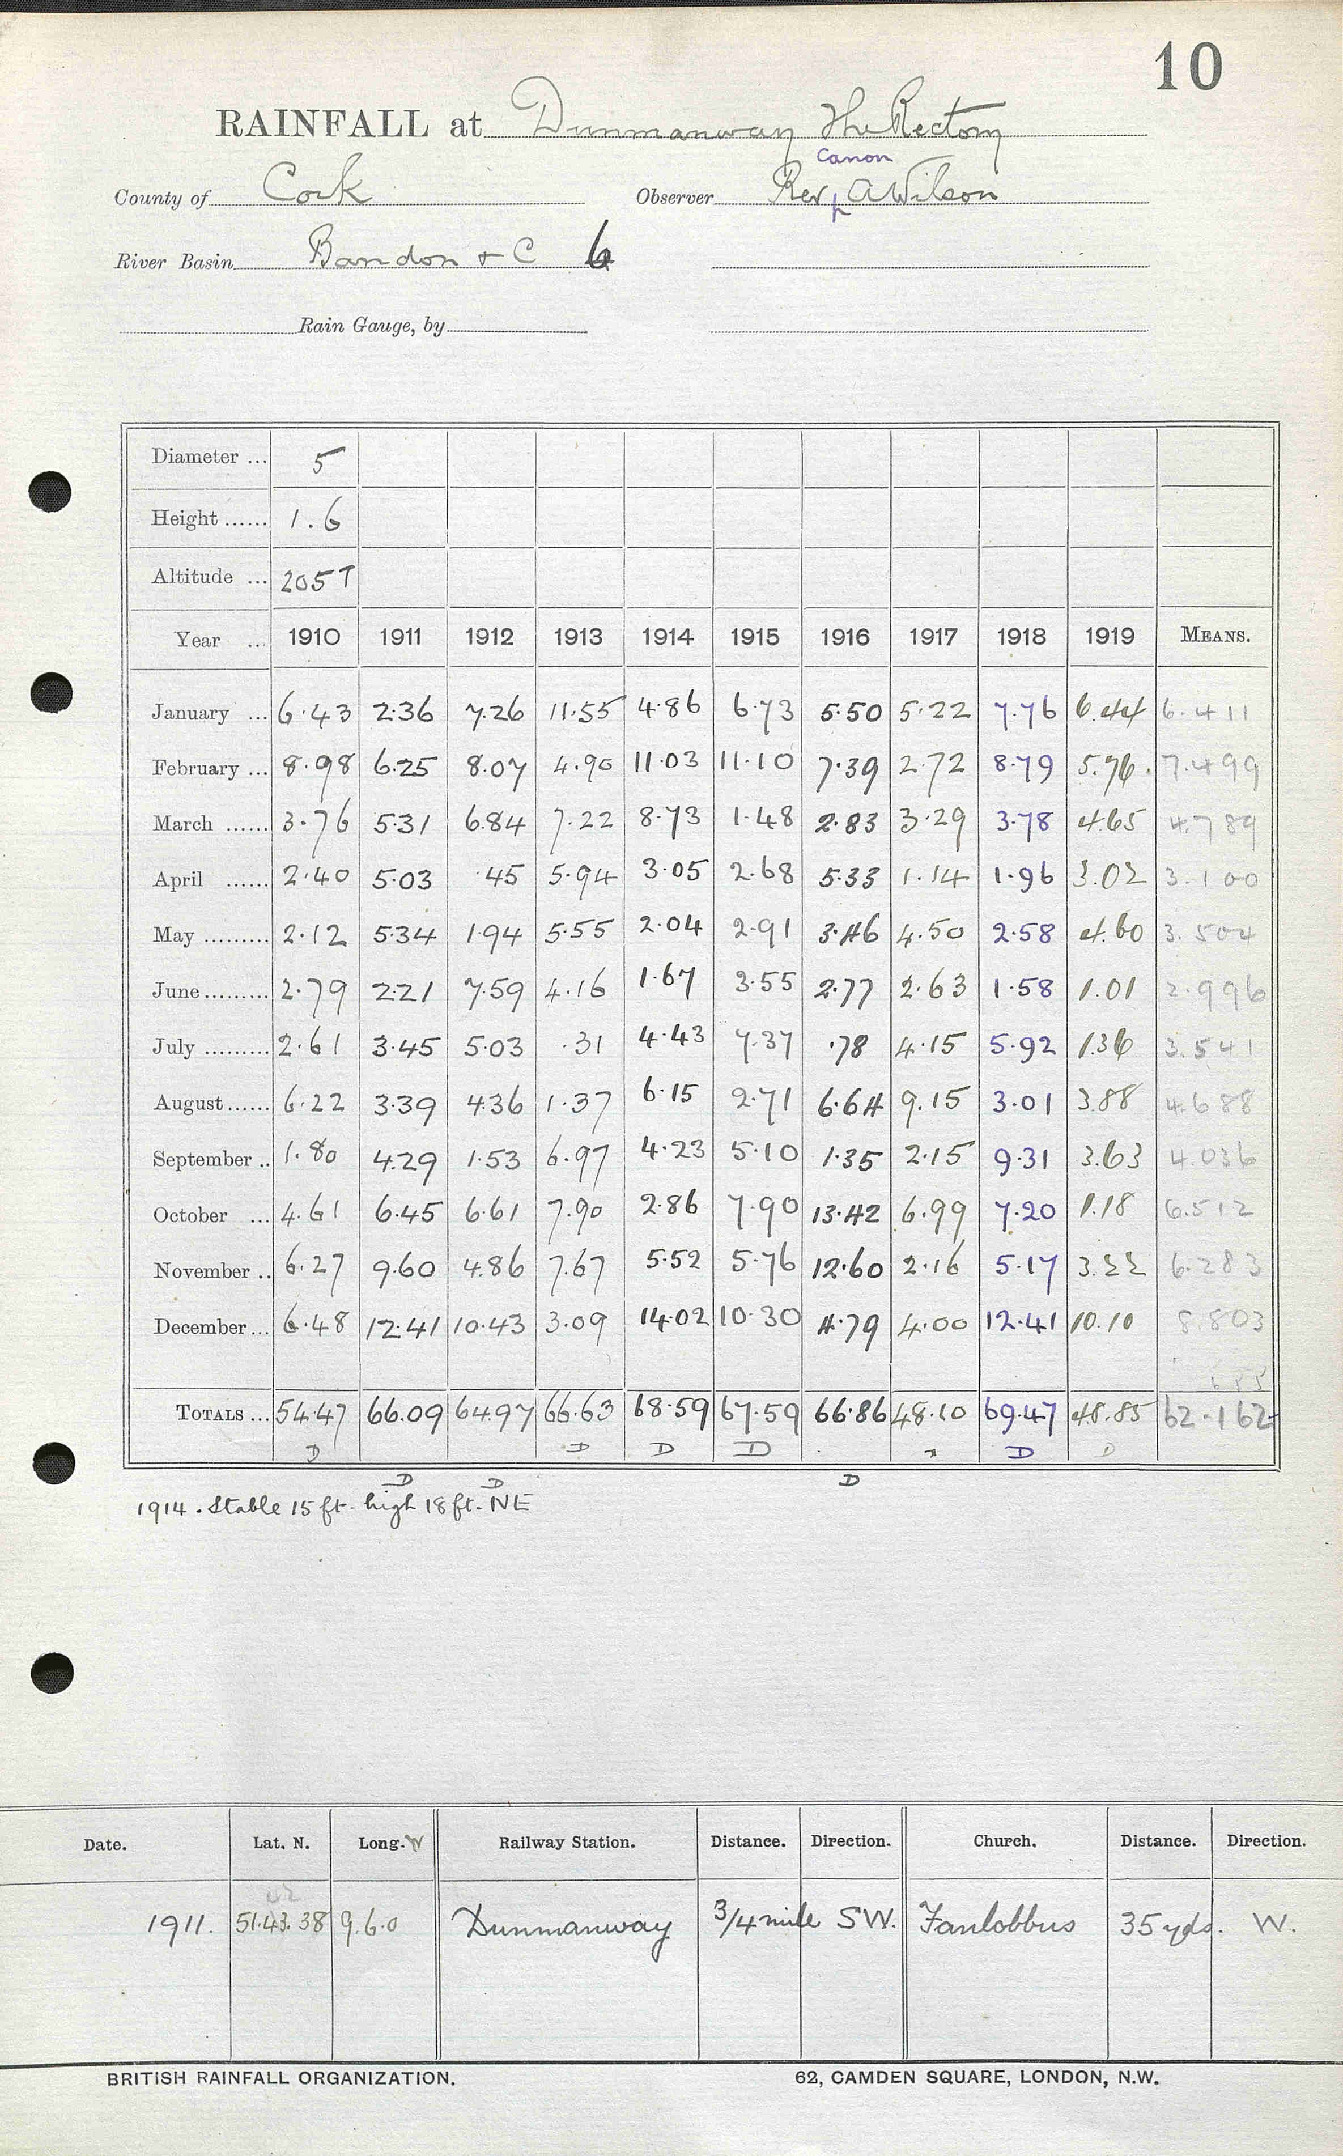 10
RAINFALL at Dunmanway The Rectory
Canon
County of Cork Observer Rev A Wilson
River Basin Bandon + C 6
Rain Gauge, by
Diameter ... 5
Height ...... 1.6
Altitude ... 205T
Year ... 1910 1911 1912 1913 1914 1915 1916 1917 1918 1919 MEANS.
January ... 6.43 2.36 7.26 11.55 4.86 6.73 5.50 5.22 7.76 6.44 6.411
February ... 8.98 6.25 8.07 4.90 11.03 11.10 7.39 2.72 8.79 5.76 7.499
March ...... 3.76 5.31 6.84 7.22 8.73 1.48 2.83 3.29 3.78 4.65 4.789
April ...... 2.40 5.03 .45 5.94 3.05 2.68 5.33 1.14 1.96 3.02 3.100
May ......... 2.12 5.34 1.94 5.55 2.04 2.91 3.46 4.50 2.58 4.60 3.504
June ......... 2.79 2.21 7.59 4.16 1.67 3.55 2.77 2.63 1.58 1.01 2.996
July ......... 2.61 3.45 5.03 .31 4.43 7.37 .78 4.15 5.92 1.36 3.541
August ...... 6.22 3.39 4.36 1.37 6.15 2.71 6.64 9.15 3.01 3.88 4.688
September .. 1.80 4.29 1.53 6.97 4.23 5.10 1.35 2.15 9.31 3.63 4.036
October ... 4.61 6.45 6.61 7.90 2.86 7.90 13.42 6.99 7.20 1.18 6.512
November .. 6.27 9.60 4.86 7.67 5.52 5.76 12.60 2.16 5.17 3.22 6.283
December ... 6.48 12.41 10.43 3.09 14.02 10.30 4.79 4.00 12.41 10.10 8.803
TOTALS ... 54.47 66.09 64.97 66.63 68.59 67.59 66.86 48.10 69.47 48.85 62.162
D D D D D D
D D D
1914. Stable 15 ft. high 18 ft. NE
Date. Lat. N. Long. W Railway Station. Distance. Direction. Church. Distance. Direction.
1911. 51.43.38 9.6.0 Dunmanway 3/4 mile SW. Fanlobbus 35 yds. W.
BRITISH RAINFALL ORGANIZATION. 62, CAMDEN SQUARE, LONDON, N.W.